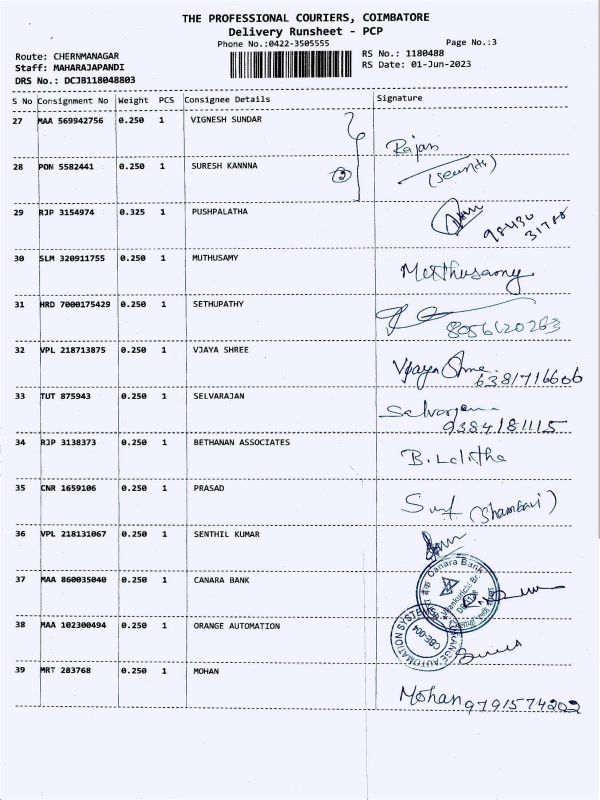 THE PROFESSIONAL COURIERS, COIMBATORE
Delivery Runsheet - PCP
Phone No.:0422-3505555 Page No.:3
Route: CHERNMANAGAR RS No.: 1180488
Staff: MAHARAJAPANDI RS Date: 01-Jun-2023
DRS No.: DCJB118048803
S No Consignment No Weight PCS Consignee Details Signature
27 MAA 569942756 0.250 1 VIGNESH SUNDAR Rajan
28 PON 5582441 0.250 1 SURESH KANNNA 2
29 RJP 3154974 0.325 1 PUSHPALATHA 98430
31788
30 SLM 320911755 0.250 1 MUTHUSAMY Muthusamy
31 HRD 7000175429 0.250 1 SETHUPATHY 8056120263
32 VPL 218713875 0.250 1 VJAYA SHREE 6381716606
33 TUT 875943 0.250 1 SELVARAJAN 9384181115
34 RJP 3138373 0.250 1 BETHANAN ASSOCIATES B. Lalitha
35 CNR 1659106 0.250 1 PRASAD
36 VPL 218131067 0.250 1 SENTHIL KUMAR
37 MAA 860035040 0.250 1 CANARA BANK Canara Bank
38 MAA 102300494 0.250 1 ORANGE AUTOMATION ORANGE AUTOMATION SYSTEMS CBE-004
39 MRT 283768 0.250 1 MOHAN Mohan 9791574202